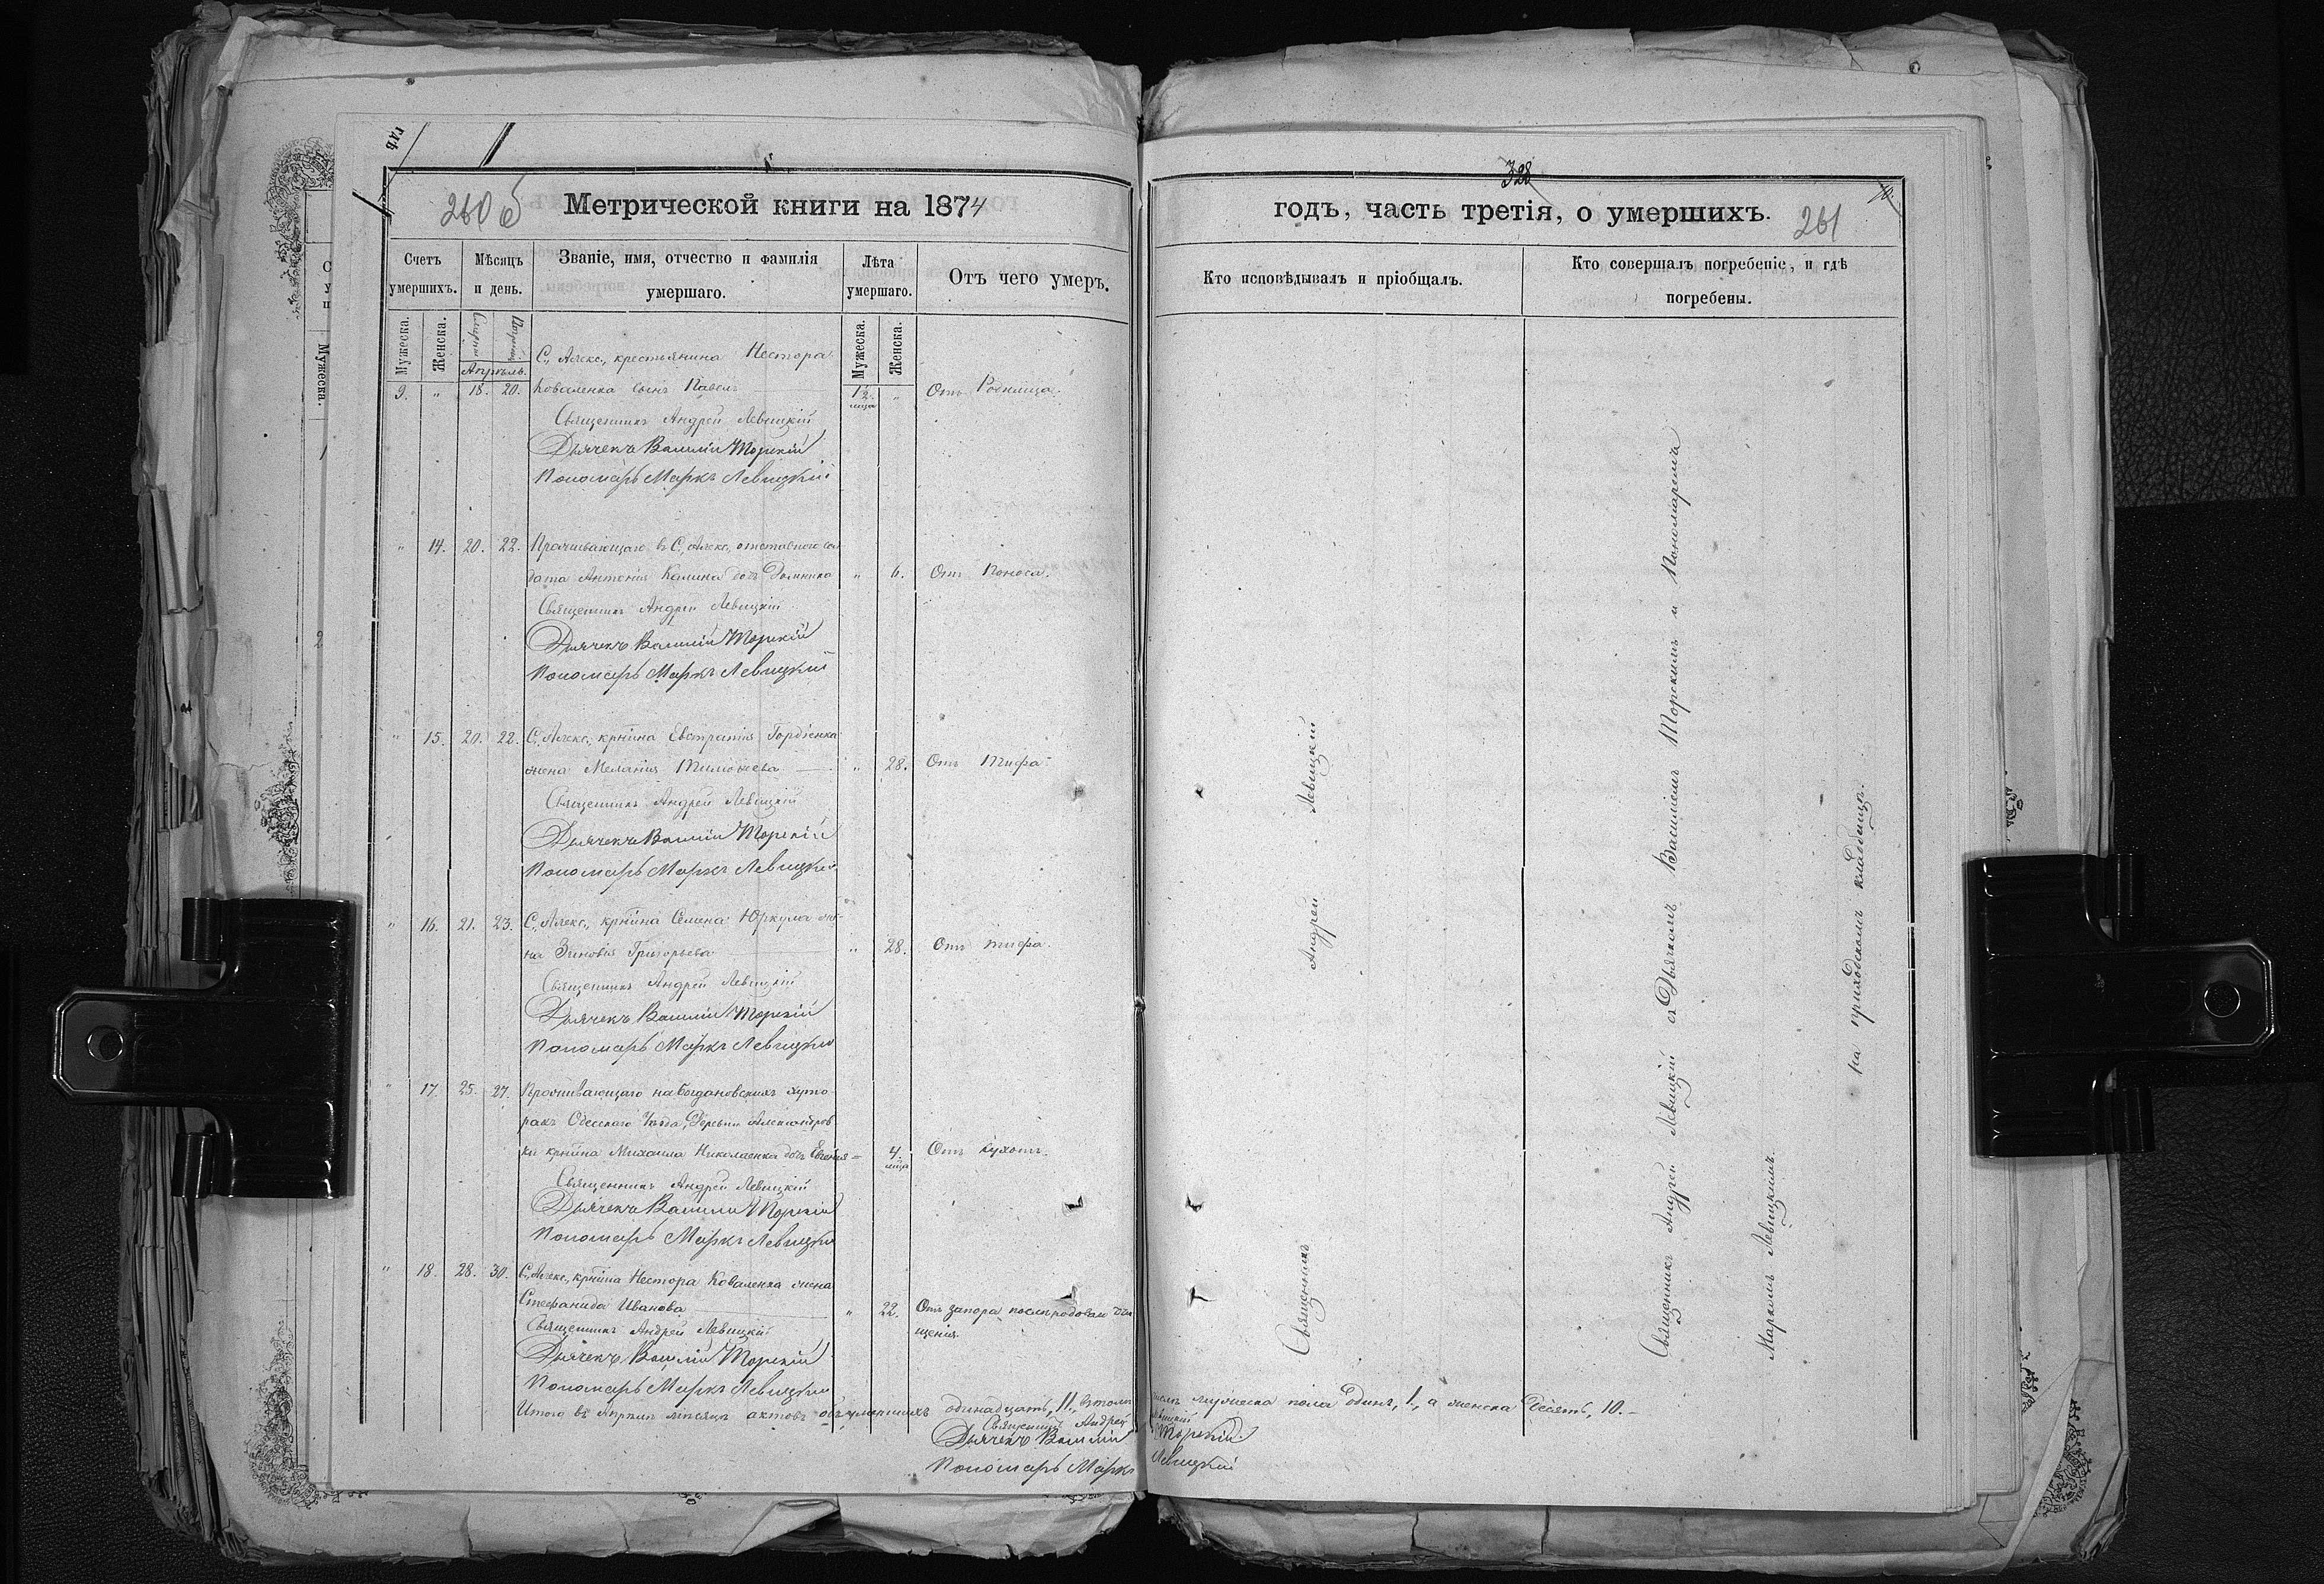 260 б
Метрической книги на 1874
Счетъ умершихъ.
Мѣсяцъ и день.
Званіе, имя, отчество и фамилія умершаго.
Лѣта умершаго.
Отъ чего умеръ.
Мужеска.
Женска.
Мужеска.
Женска.
Апрѣль.
С., Алекс., крестьянина Нестора
9. „ 18. 20. Коваленка сынъ Павелъ 1 1/2. мца „ Отъ Родимца.
Священникъ Андрей Левицкій
Дьячекъ Василій Торскій
Пономарь Маркъ Левицкій
„ 14. 20. 22. Проживающаго въ С., Алекс., отставного сол
дата Антонія Калина дочь Домника „ 6. Отъ Поноса.
Священникъ Андрей Левицкій
Дьячекъ Василій Торскій
Пономарь Маркъ Левицкій
„ 15. 20. 22. С., Алекс., крнина Евстратія Гордіенка
жена Меланія Тимофеева „ 28. Отъ Тифа
Священникъ Андрей Левицкій
Дьячекъ Василій Торскій
Пономарь Маркъ Левицкій
„ 16. 21. 23. С., Алекс., крнина Семена Юркула же-
на Зиновія Григорьева „ 28. Отъ тифа.
Священникъ Андрей Левицкій
Дьячекъ Василій Торскій
Пономарь Маркъ Левицкій
„ 17. 25. 27. Проживающаго на Богдановскихъ хуто
рахъ Одесскаго Уѣзда, Деревни Александров
ки крнина Михаила Николаенка дочь Евгенія 4. мца Отъ сухотъ.
Священникъ Андрей Левицкій
Дьячекъ Василій Торскій
Пономарь Маркъ Левицкій
„ 18. 28. 30. С., Алекс., крнина Нестора Коваленка жена
Стефанида Иванова „ 22. Отъ запора послѣродоваго очи
щенія
Священникъ Андрей Левицкій
Дьячекъ Василій Торскій
Пономарь Маркъ Левицкій
Итого въ Апрѣлѣ мѣсяцѣ актовъ объ умершихъ одинадцать, 11., въ томъ
Священникъ Андрей
Дьячекъ Василій
Пономарь Маркъ
328
10.
годъ, часть третія, о умершихъ.
261
Кто исповѣдывалъ и пріобщалъ.
Кто совершалъ погребеніе, и гдѣ погребены.
Священникъ Андрей Левицкій
Священникъ Андрей Левицкій съ Дьячкомъ Василіемъ Торскимъ и Пономаремъ
Маркомъ Левицкимъ
на приходскомъ кладбищѣ.
числѣ мужеска пола одинъ, 1., а женска десять, 10.
Левицкій
Торскій
Левицкій